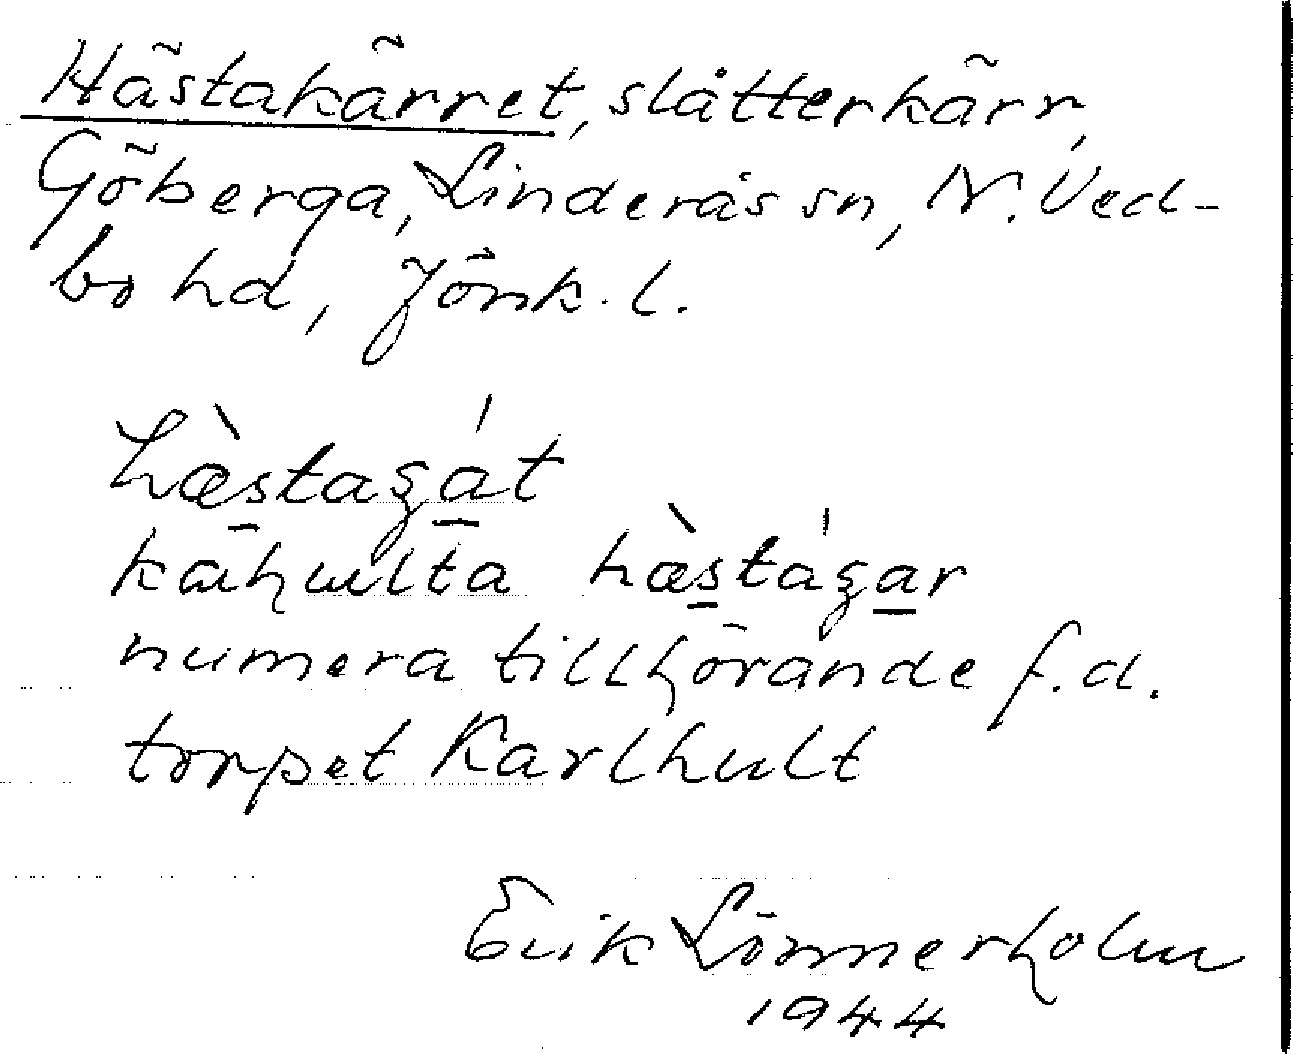 Hästakärret, slåtterkärr,
Göberga, Linderås sn, N. Ved-
bo hd, Jönk. l.
hæ̀staʒát
kahulta hæ̀stáʒar
numera tillhörande f.d.
torpet Karlhult
Erik Lönnerholm
1944